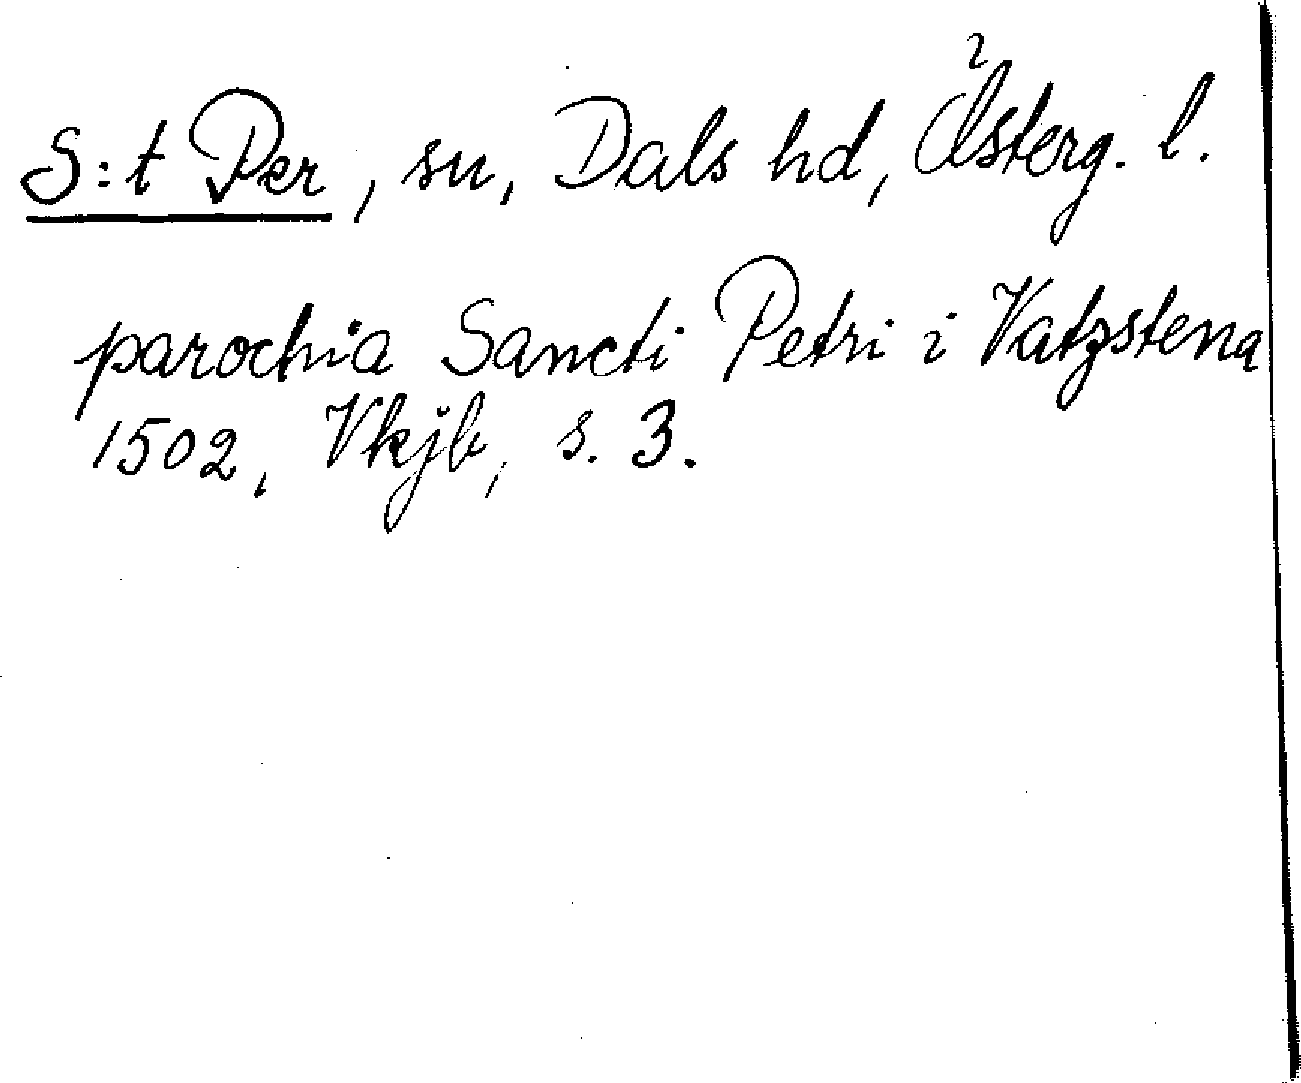 S:t Per, sn, Dals hd, Österg. l.
parochia Sancti Petri i Vatzstena
1502, Vkjb, s. 3.